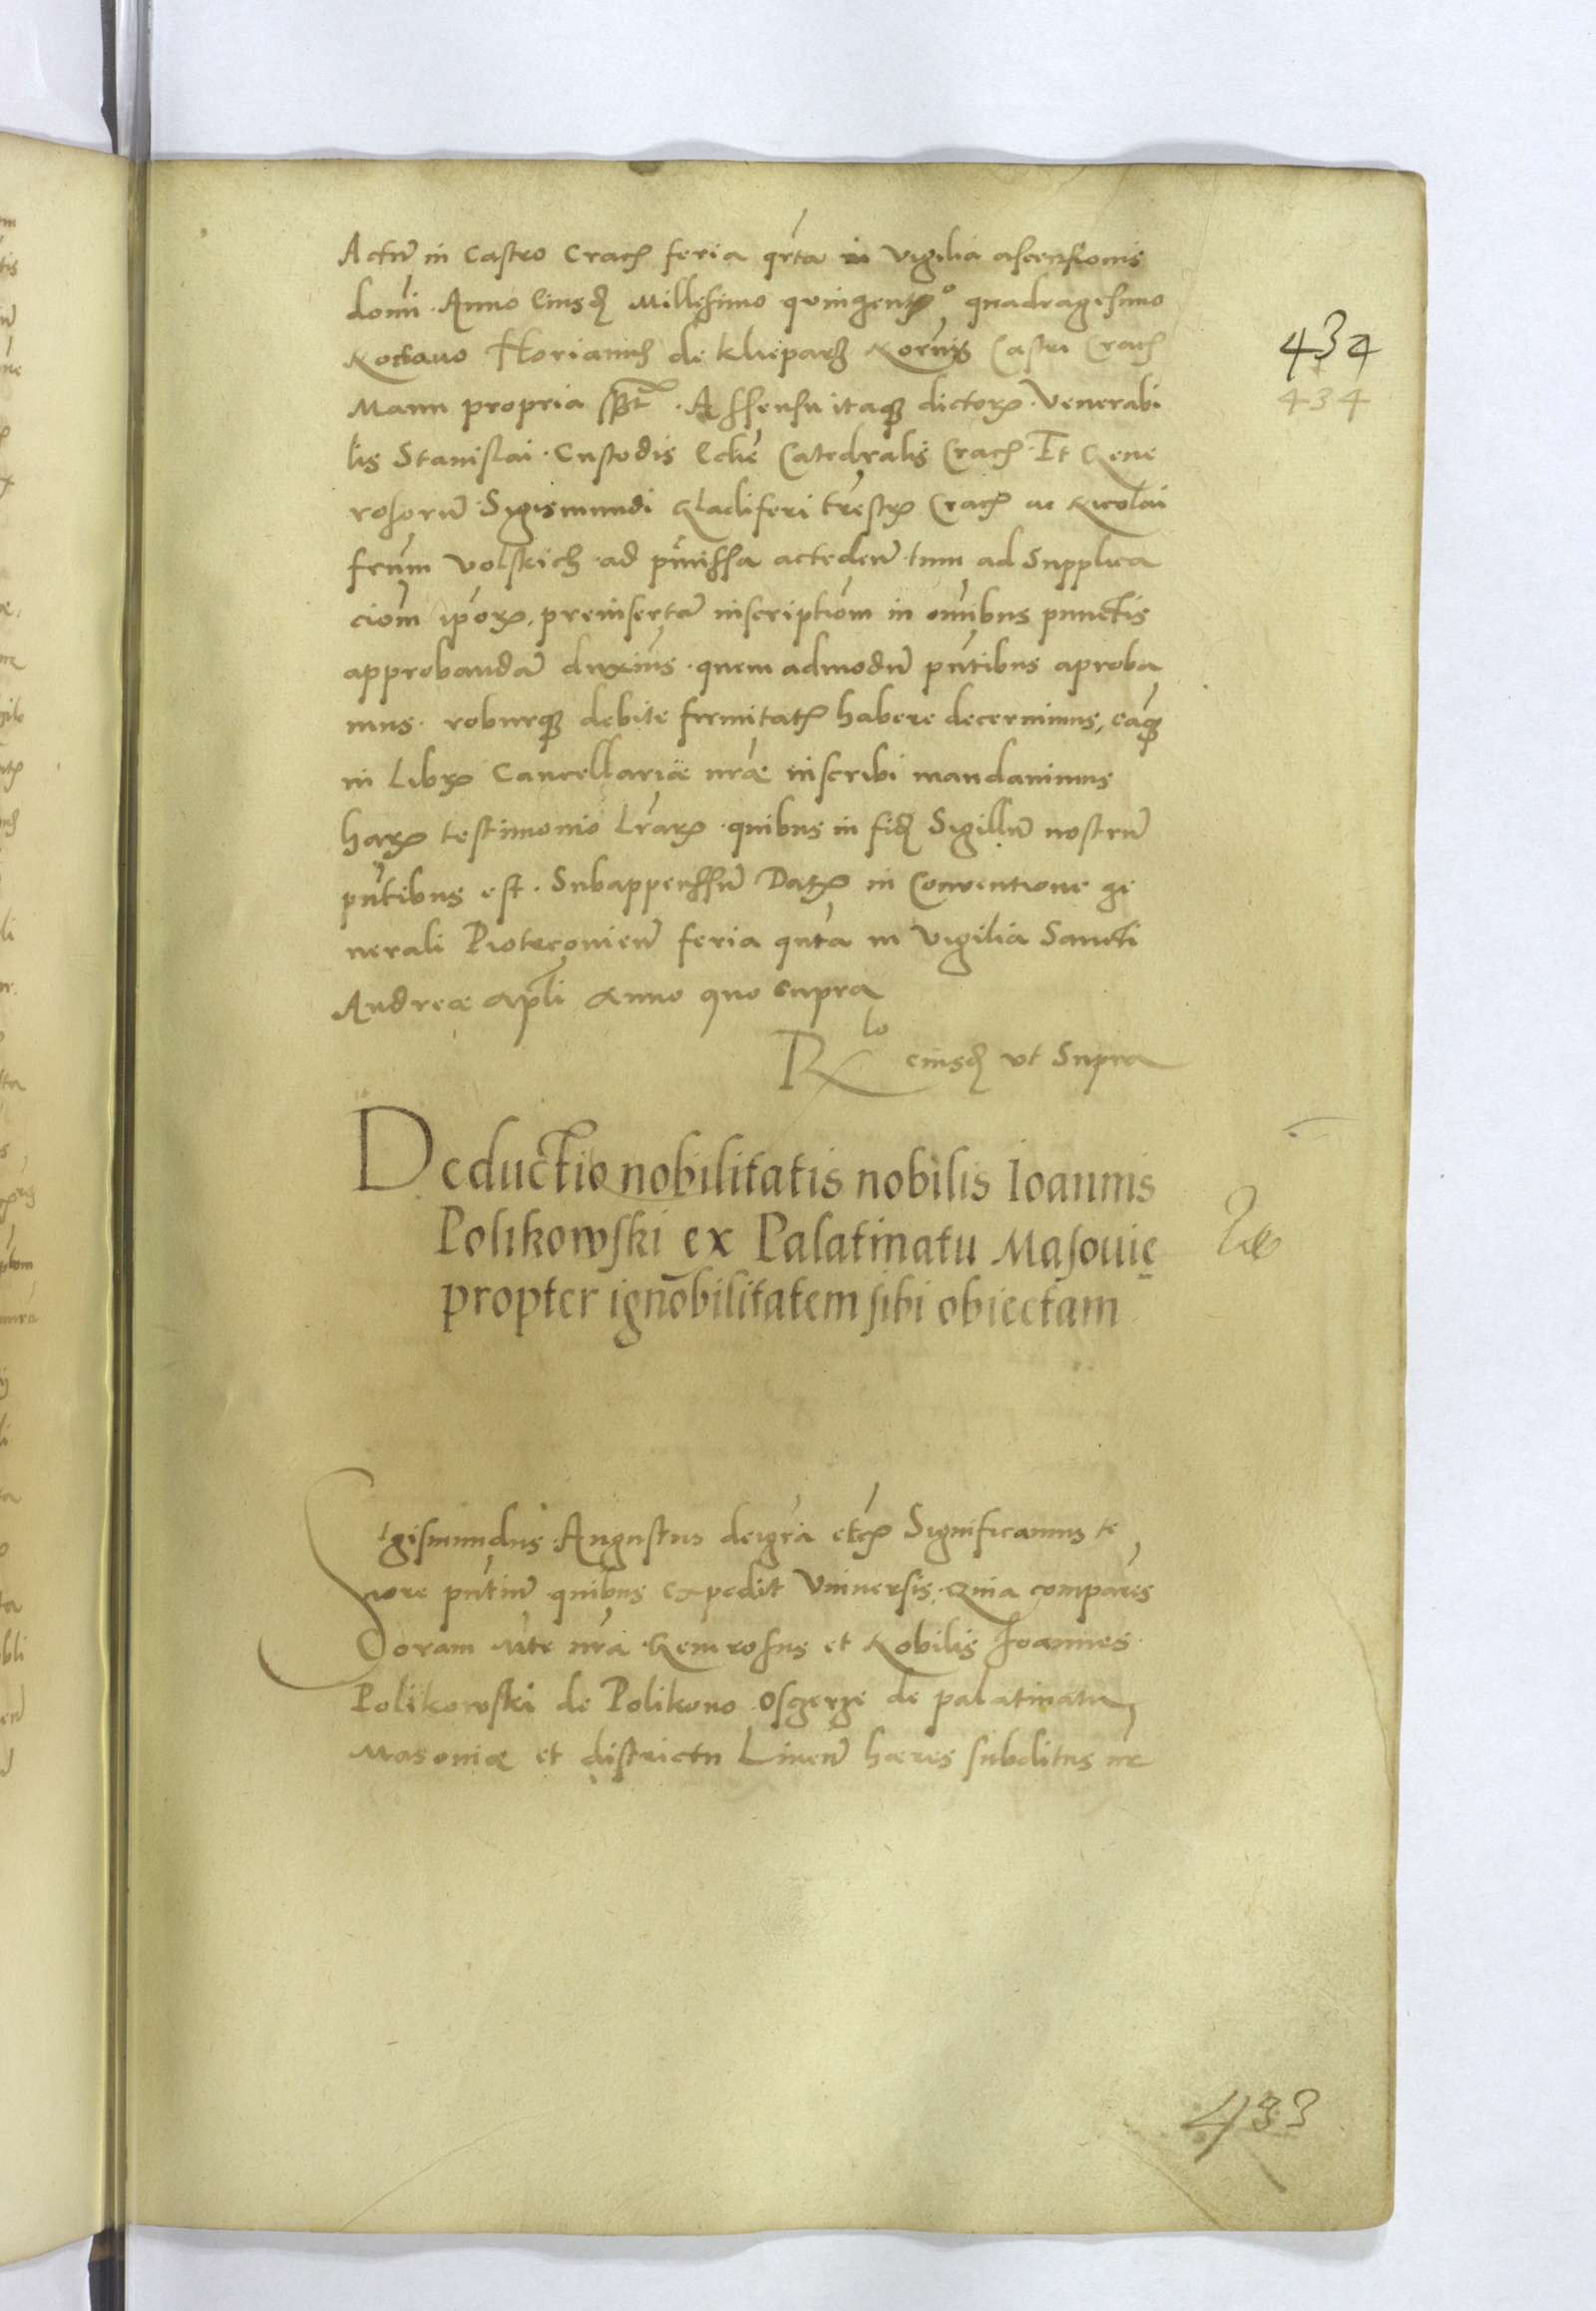 Actũ in Castro Crac̃ feria qrta in vigilia ascensionis
domi. Anno Eiusd̃ Millesimo quingentᵒ quadragesimo
Noctavo Florianus de Klieparz Notrius Castri Crac̃
Manu propria sspt. Assensu itaq̃ dictorꝝ. Venerabi
lis Stanislai. Custodis Eccłie Catedralis Crac̃. Et Gene
rosorũ. Sigismundi Gladiferi trestrꝝ Crac̃ ac Nicolai
frum volskich. ad pmissa accedeñ. tum ad Supplica
ciom ipoꝝ. preinsertã inscriptiom in omibus punctis
approbandã duxims. quem admodũ pntibus aproba
mus. roburq̃ debite firmitatꝭ habere decernimus, eaq̃
in Librꝭ Cancellariæ nræ inscribi mandavimus
haꝝ testimonio Lrarꝝ. quibus in fid̃ Sigillũ nostrũ
pntibus est. Subappenssũ Datꝭ in Conventione ge
nerali Piotrcovień feria qnta in vigilia Sancti
Andreæ apłi anno quo supra
Rlo eiusd̃ vt Supra
Deductio nobilitatis nobilis Ioannis
Polikowski ex Palatinatu Masouię
propter ignobilitatem sibi obiectam
Sigismundus. Augustus dei gra etcꝭ Significamus te
nore pntium quibus Expedit Vniversis. Quia compares
Coram Mte nra. Generosus et Nobilis Joannes
Polikowski de Polikouo Osczerze de palatinatu
Masoniæ et districtu Liueñ hæres subditus nr
434
434
433